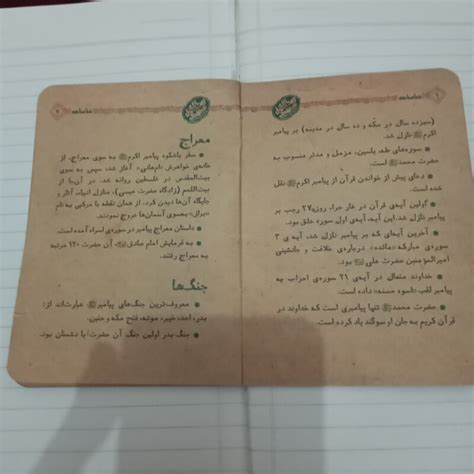 شناسنامه
(سیزده سال در مکّه و ده سال در مدینه) بر پیامبر
اکرم ﷺ نازل شد.
● سوره‌های طه، یاسین، مزمل و مدثر منسوب به
حضرت محمد ﷺ است.
● دعای پیش از خواندن قرآن از پیامبر اکرم ﷺ نقل
شده است.
● اولین آیه‌ی قرآن در غار حراء روز ۲۷ رجب بر
پیامبر نازل شد. این آیه، آیه‌ی اول سوره علق بود.
● آخرین آیه‌ای که بر پیامبر نازل شد، آیه ی ۳
سوره‌ی مبارکه «مائده» درباره‌ی خلافت و جانشینی
امیرالمؤمنین حضرت علی بود.
● خداوند متعال در آیه‌ی ۲۱ سوره‌ی احزاب به
پیامبر لقب «اسوه حسنه» داده است.
● حضرت محمد ﷺ تنها پیامبری است که خداوند در
قرآن کریم به جان او سوگند یاد کرده است.
شناسنامه
معراج
● سفر باشکوه پیامبر اکرم ﷺ به سوی معراج، از
خانه‌ی خواهرش «ام‌هانی» آغاز شد، سپس به سوی
بیت‌المقدس در فلسطین روانه شد. در آن‌جا از
بیت‌اللحم (زادگاه حضرت عیسی)، منازل انبیاء و آثار و
جایگاه آن‌ها دیدن کرد. از همان نقطه با مرکبی به نام
«براق» به‌سوی آسمان‌ها عروج نمودند.
● داستان معراج پیامبر در سوره‌ی اسراء آمده است.
● به فرمایش امام صادق آن حضرت ۱۲۰ مرتبه
به معراج رفتند.
جنگ‌ها
● معروف‌ترین جنگ‌های پیامبر ﷺ عبارت‌اند از:
بدر، احد، خیبر، موته، فتح مکه و حنین.
● جنگ بدر اولین جنگ آن حضرت با دشمنان بود.